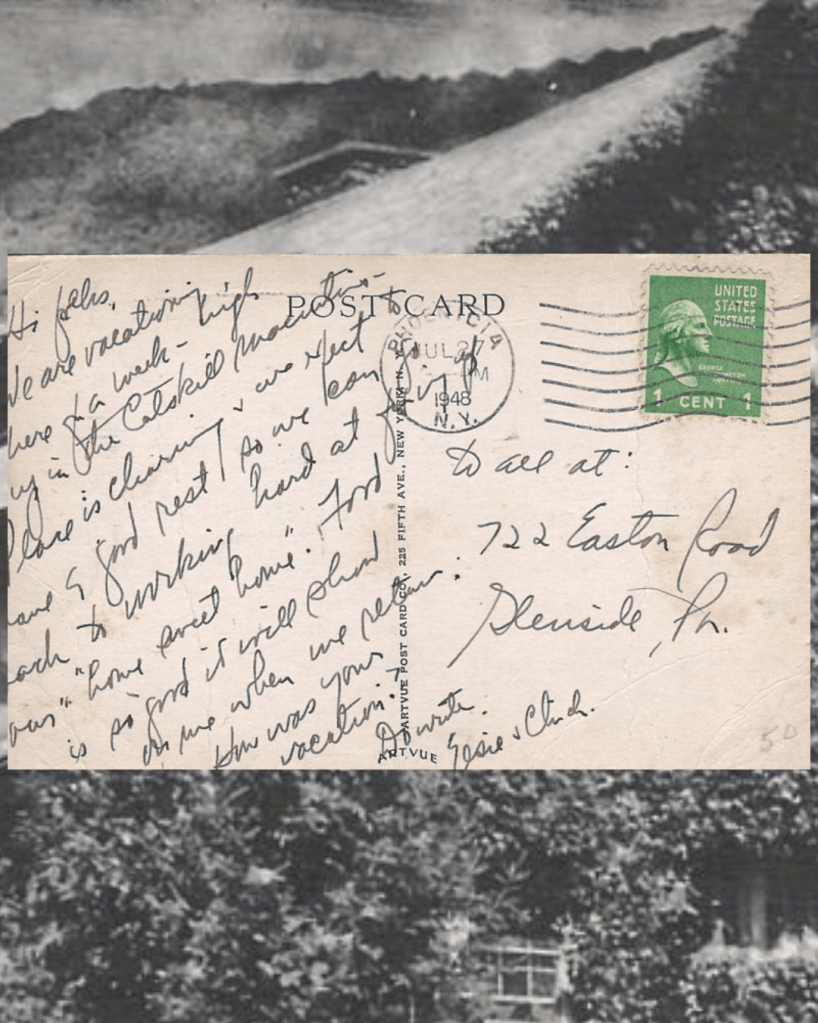 POST CARD
Hi folks,
We are vacationing
here for a week - high
up in the Catskill Mountains -
Place is charming & we expect to
have a good rest so we can go
back to working hard at fixing up
our "home sweet home". Food
is so good it will show
on me when we return.
How was your
vacation?
Do write.
Elsie &
PHOENICIA
JUL 27
PM
1948
N.Y.
UNITED
STATES
POSTAGE
GEORGE
WASHINGTON
1 CENT 1
to all at:
722 Easton Road
Glenside, Pa.
ARTVUE POST CARD CO., 225 FIFTH AVE., NEW YORK, N. Y.
ARTVUE
50